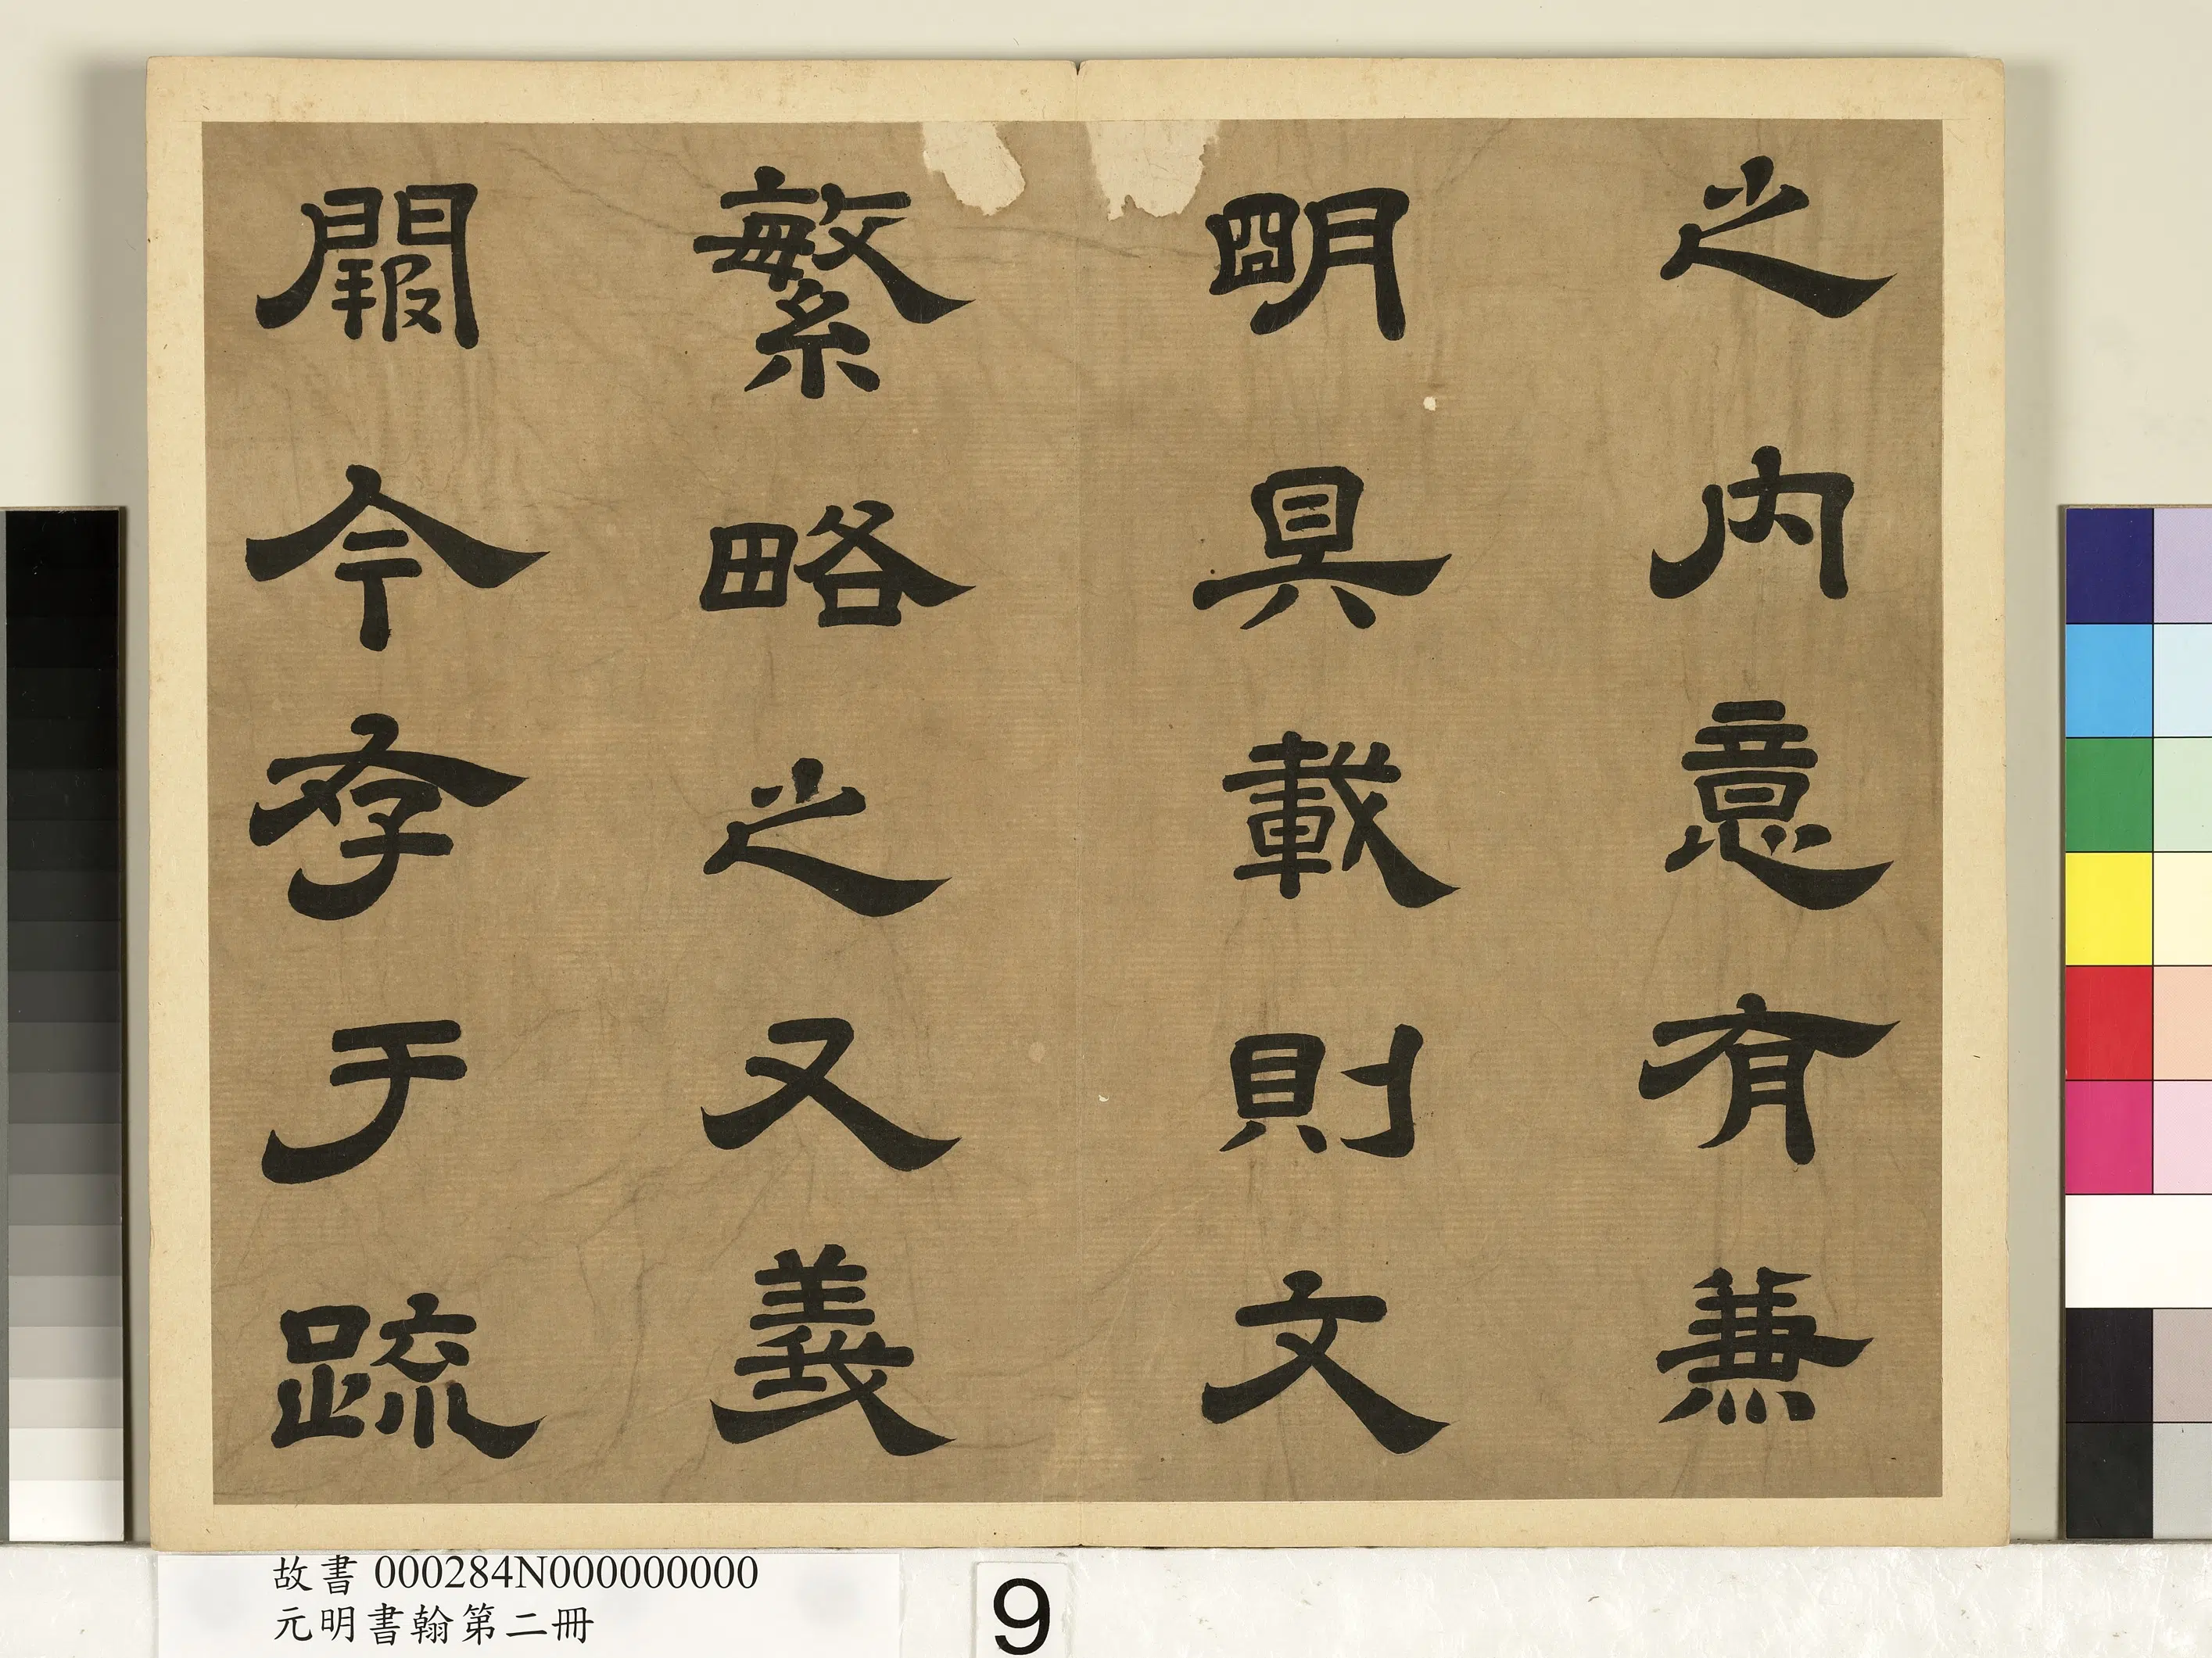 之内意有兼
明具載則文
繁略之又義
闕今存于疏
故書 000284N000000000
元明書翰第二冊
9